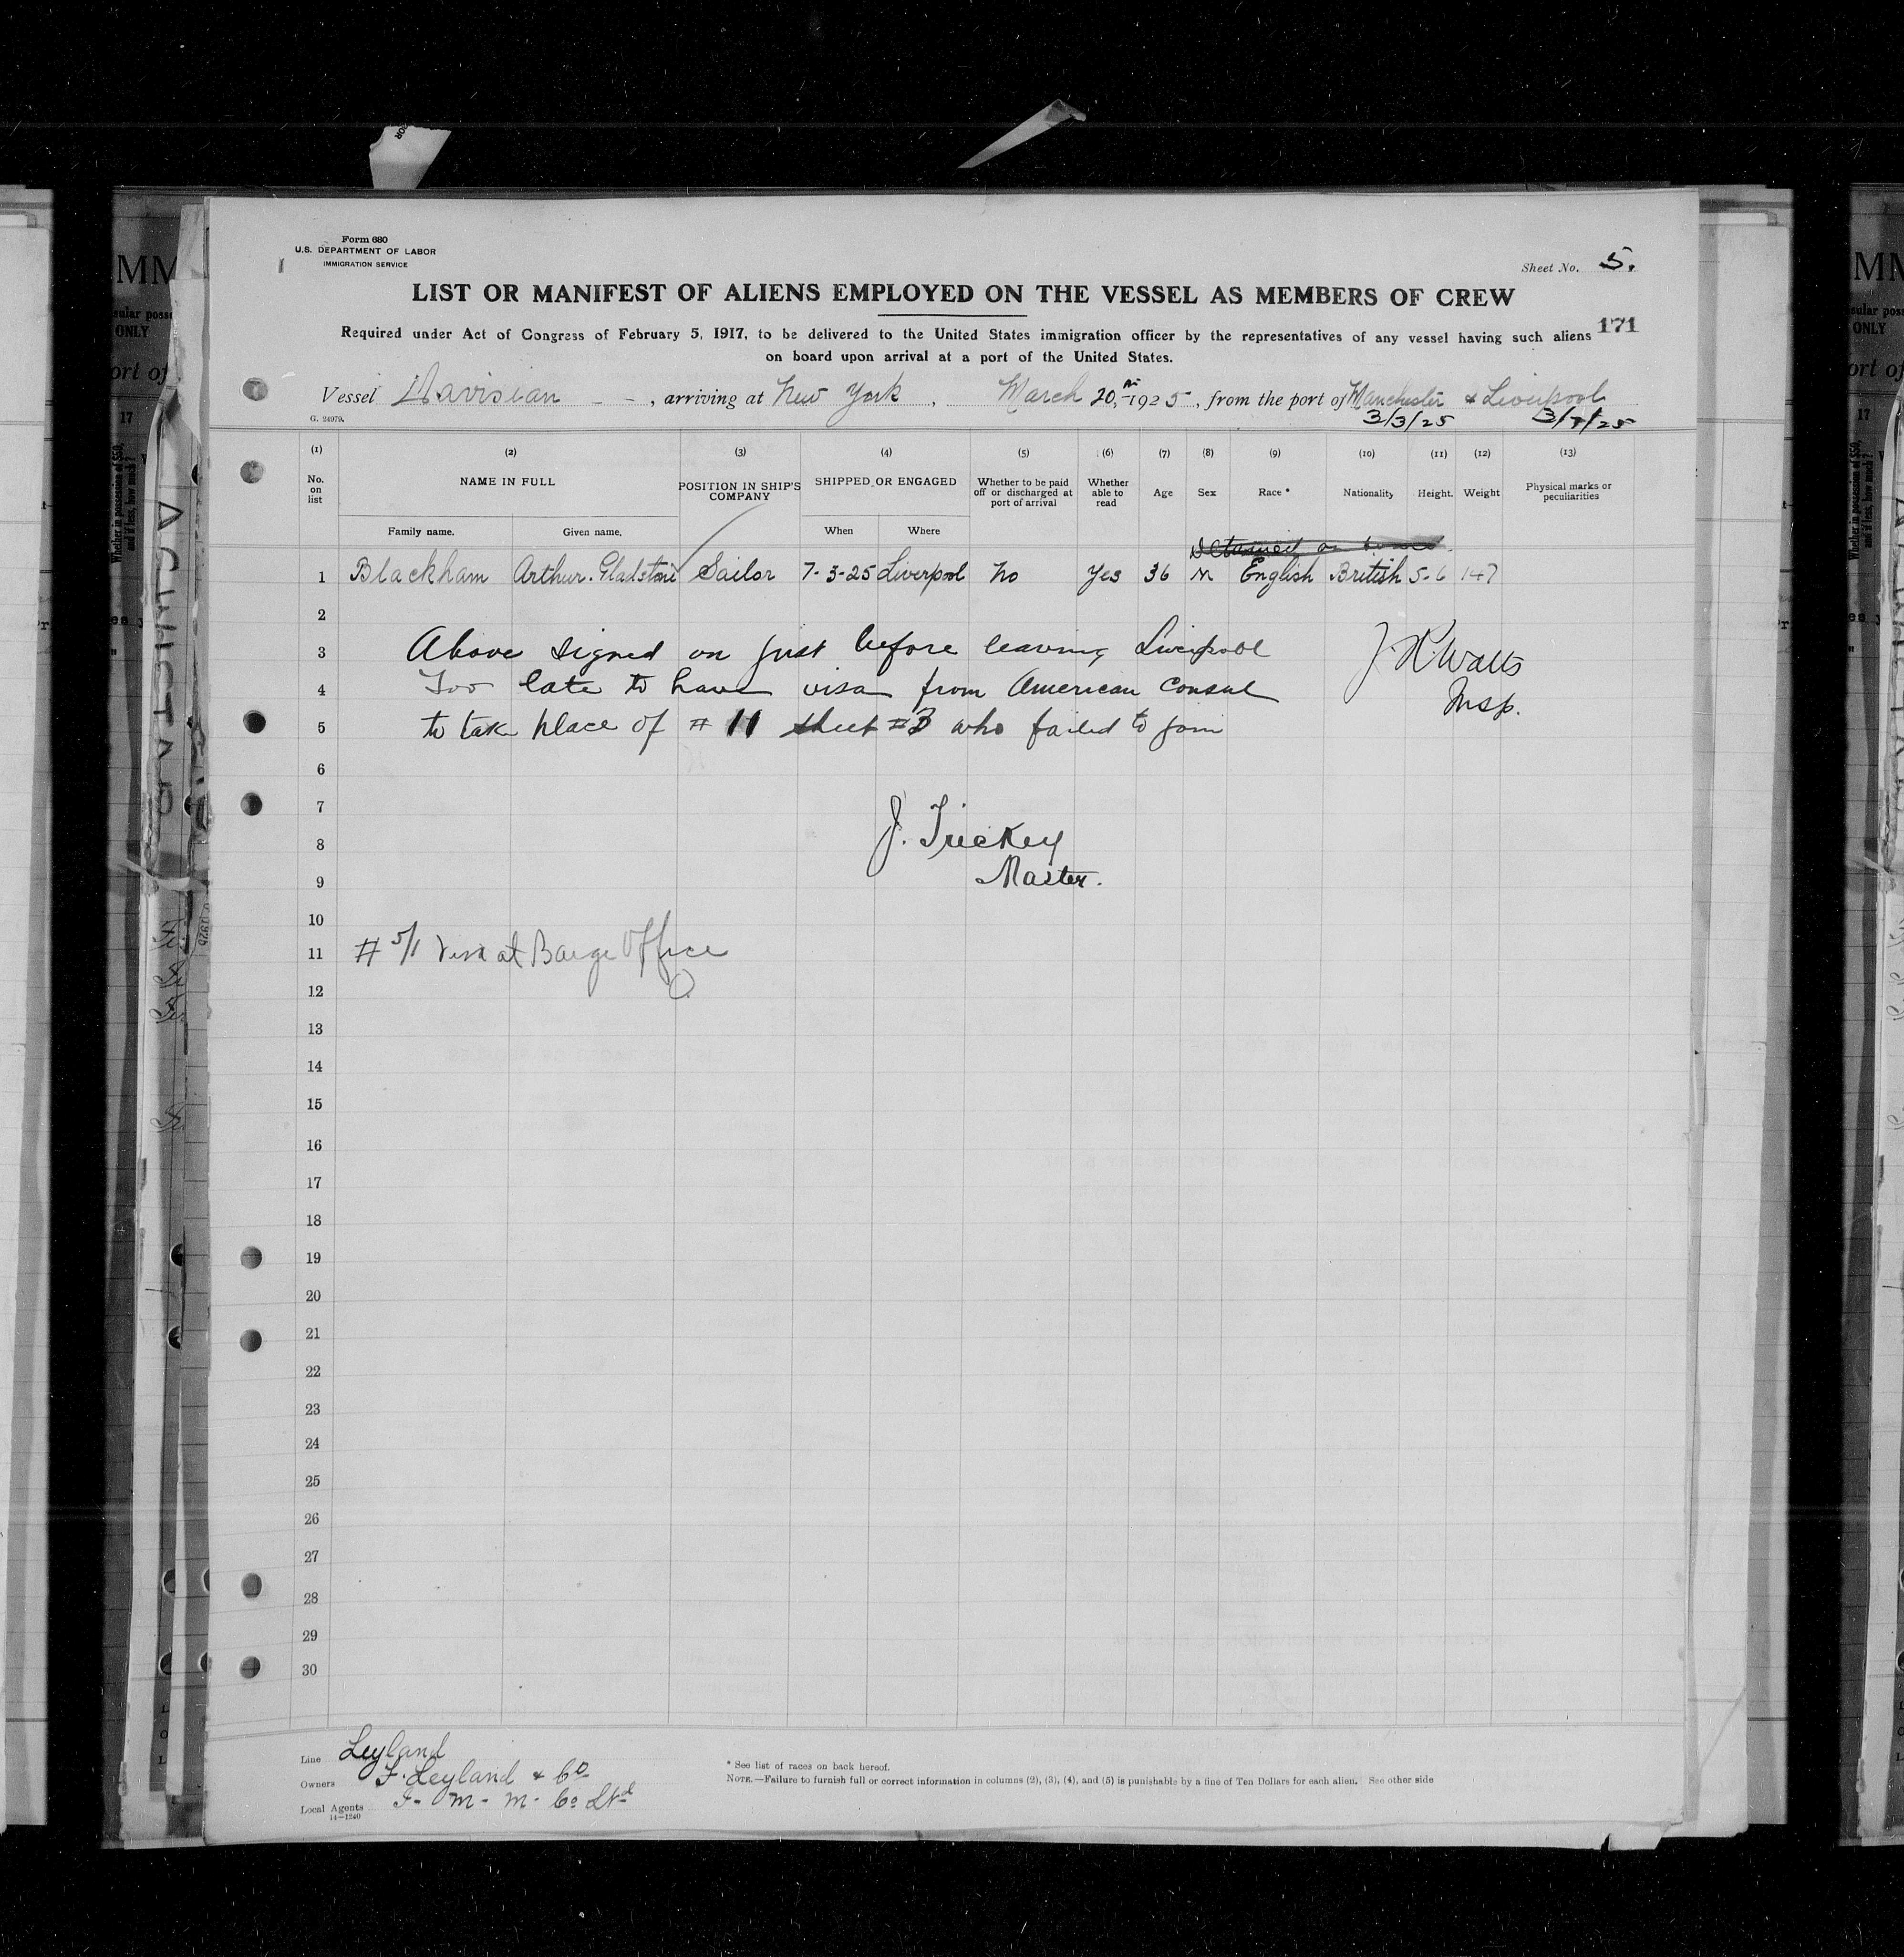 Form 680
U.S. DEPARTMENT OF LABOR
IMMIGRATION SERVICE
Sheet No. 5.
LIST OR MANIFEST OF ALIENS EMPLOYED ON THE VESSEL AS MEMBERS OF CREW
171
Required under Act of Congress of February 5, 1917, to be delivered to the United States immigration officer by the representatives of any vessel having such aliens
on board upon arrival at a port of the United States.
Vessel Davisian - -, arriving at New York, March 20, 1925, from the port of Manchester & Liverpool
G. 24979.
3/3/25 3/7/25
(1) (2) (3) (4) (5) (6) (7) (8) (9) (10) (11) (12) (13)
No. on list NAME IN FULL POSITION IN SHIP'S COMPANY SHIPPED OR ENGAGED Whether to be paid off or discharged at port of arrival Whether able to read Age Sex Race * Nationality Height. Weight Physical marks or peculiarities
Family name. Given name. When Where
Detained on board
1 Blackham Arthur. Gladstone Sailor 7-3-25 Liverpool No Yes 36 M English British 5-6 147
2
3 Above signed on just before leaving Liverpool
J. R. Watts
4 Too late to have visa from American Consul
Insp.
5 to take place of # 11 sheet #3 who failed to join
6
7
8 J. Trickey
9 Master.
10
11 # 5/1 Visa at Barge Office
12
13
14
15
16
17
18
19
20
21
22
23
24
25
26
27
28
29
30
Line Leyland
Owners F. Leyland & Co
Local Agents I. M. M. Co Ltd
14—1240
* See list of races on back hereof.
NOTE.—Failure to furnish full or correct information in columns (2), (3), (4), and (5) is punishable by a fine of Ten Dollars for each alien. See other side